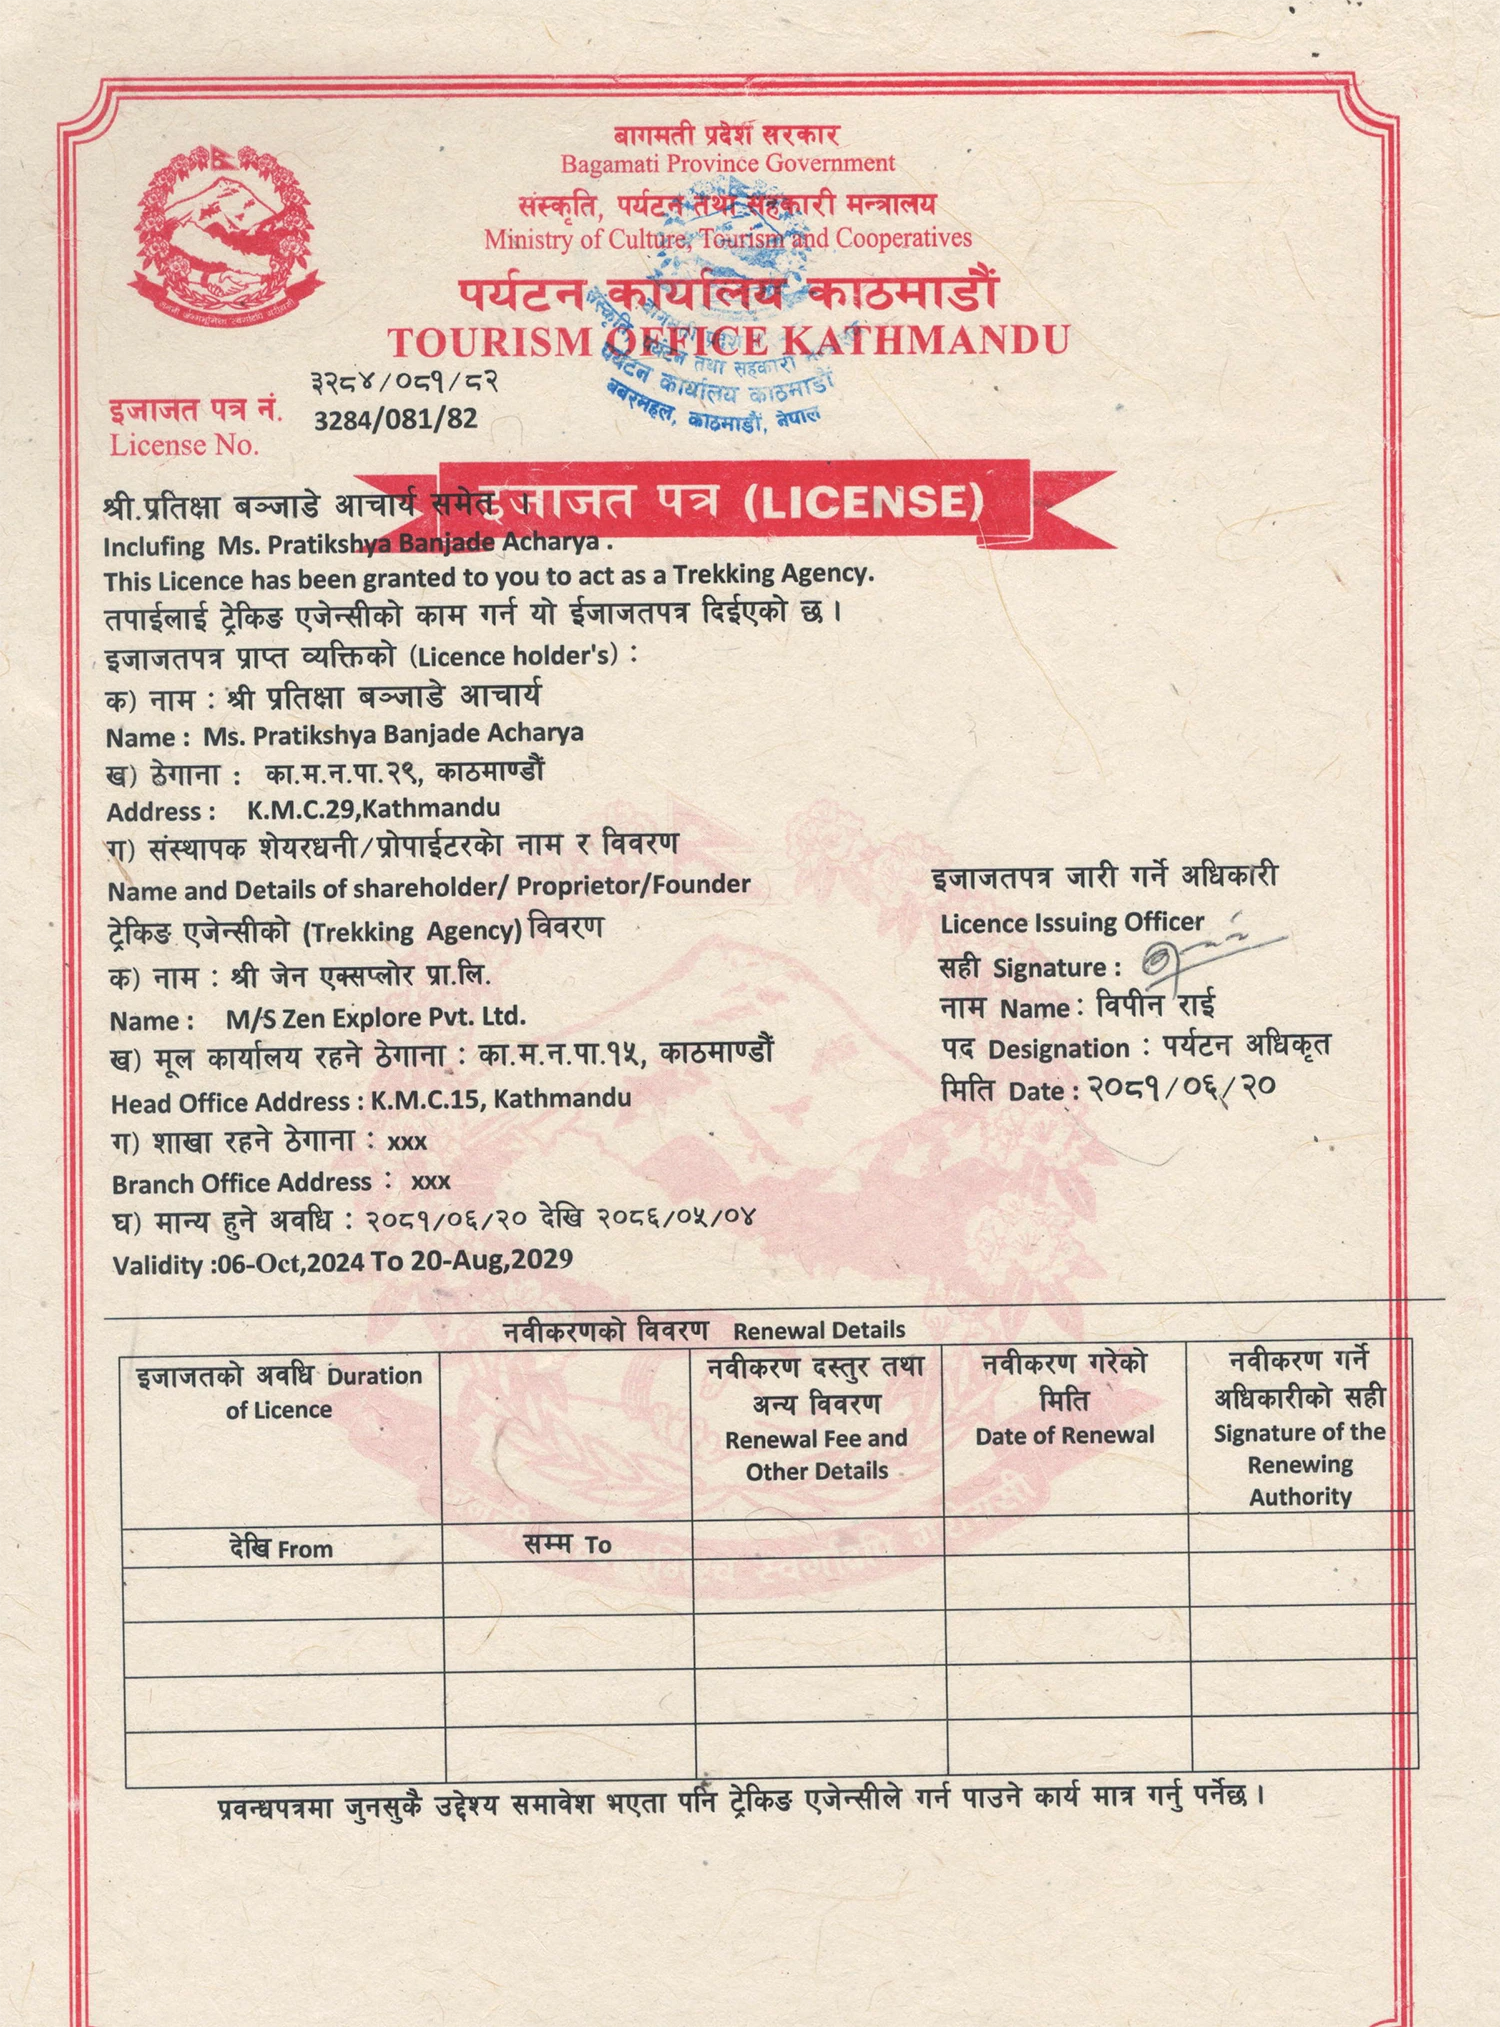 बागमती प्रदेश सरकार
Bagamati Province Government
संस्कृति, पर्यटन तथा सहकारी मन्त्रालय
Ministry of Culture, Tourism and Cooperatives
पर्यटन कार्यालय काठमाडौं
TOURISM OFFICE KATHMANDU
संस्कृति, पर्यटन तथा सहकारी
पर्यटन कार्यालय काठमाडौं
बबरमहल, काठमाडौं, नेपाल
३२८४/०८१/८२
इजाजत पत्र नं. 3284/081/82
License No.
इजाजत पत्र (LICENSE)
श्री.प्रतिक्षा बञ्जाडे आचार्य समेत ।
Inclufing Ms. Pratikshya Banjade Acharya .
This Licence has been granted to you to act as a Trekking Agency.
तपाईलाई ट्रेकिङ एजेन्सीको काम गर्न यो ईजाजतपत्र दिईएको छ ।
इजाजतपत्र प्राप्त व्यक्तिको (Licence holder's) :
क) नाम : श्री प्रतिक्षा बञ्जाडे आचार्य
Name : Ms. Pratikshya Banjade Acharya
ख) ठेगाना : का.म.न.पा.२९, काठमाण्डौं
Address : K.M.C.29,Kathmandu
ग) संस्थापक शेयरधनी/प्रोपाईटरको नाम र विवरण
Name and Details of shareholder/ Proprietor/Founder
ट्रेकिङ एजेन्सीको (Trekking Agency) विवरण
क) नाम : श्री जेन एक्सप्लोर प्रा.लि.
Name : M/S Zen Explore Pvt. Ltd.
ख) मूल कार्यालय रहने ठेगाना : का.म.न.पा.१५, काठमाण्डौं
Head Office Address : K.M.C.15, Kathmandu
ग) शाखा रहने ठेगाना : xxx
Branch Office Address : xxx
घ) मान्य हुने अवधि : २०८१/०६/२० देखि २०८६/०५/०४
Validity :06-Oct,2024 To 20-Aug,2029
इजाजतपत्र जारी गर्ने अधिकारी
Licence Issuing Officer
सही Signature :
नाम Name : विपीन राई
पद Designation : पर्यटन अधिकृत
मिति Date : २०८१/०६/२०
नवीकरणको विवरण Renewal Details
इजाजतको अवधि Duration
of Licence
नवीकरण दस्तुर तथा
अन्य विवरण
Renewal Fee and
Other Details
नवीकरण गरेको
मिति
Date of Renewal
नवीकरण गर्ने
अधिकारीको सही
Signature of the
Renewing
Authority
देखि From
सम्म To
प्रवन्धपत्रमा जुनसुकै उद्देश्य समावेश भएता पनि ट्रेकिङ एजेन्सीले गर्न पाउने कार्य मात्र गर्नु पर्नेछ ।